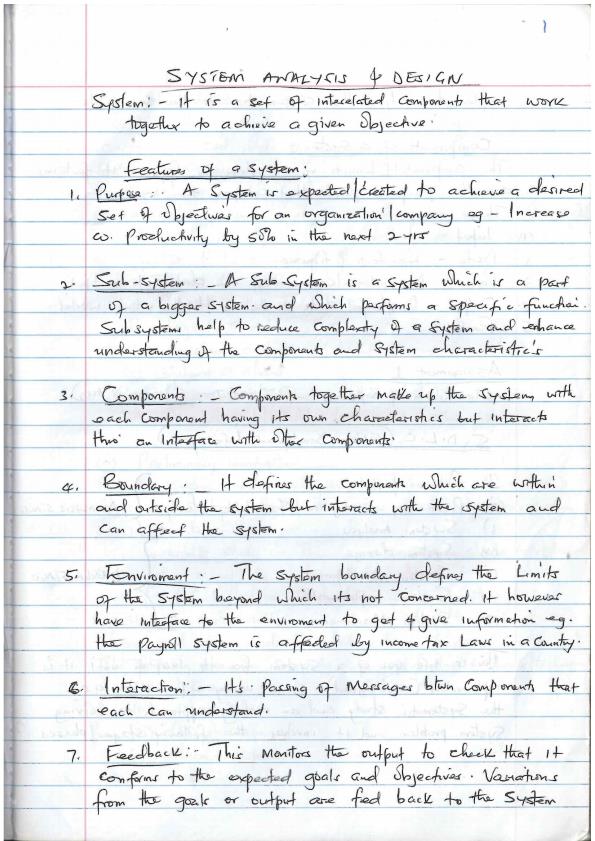 1
SYSTEM ANALYSIS & DESIGN
System:- It is a set of interelated Components that work
together to achieve a given Objective.
Features of a System:
1. Purpose:- A System is expected/created to achieve a desired
Set of Objectives for an organization/company eg - Increase
co. Productivity by 50% in the next 2yrs
2. Sub-system:- A Sub-System is a System which is a part
of a bigger System. and which performs a Specific function.
Sub systems help to reduce Complexity of a System and enhance
understanding of the Components and System characteristic's
3. Components:- Components together make up the System, with
each Component having its own Characteristics but interacts
thro' an Interface with Other Components.
4. Boundary:- It defines the components which are within
and outside the system but interacts with the system and
can affect the System.
5. Enviroment:- The System boundary defines the Limits
of the System beyond which its not Concerned. it however
have interface to the enviroment to get & give information eg.
the payroll System is affected by income tax Laws in a Country.
6. Interaction:- It's Passing of Messages btwn Components that
each can understand.
7. Feedback:- This Monitors the output to check that it
conforms to the expected goals and Objectives. Variations
from the goals or output are fed back to the System